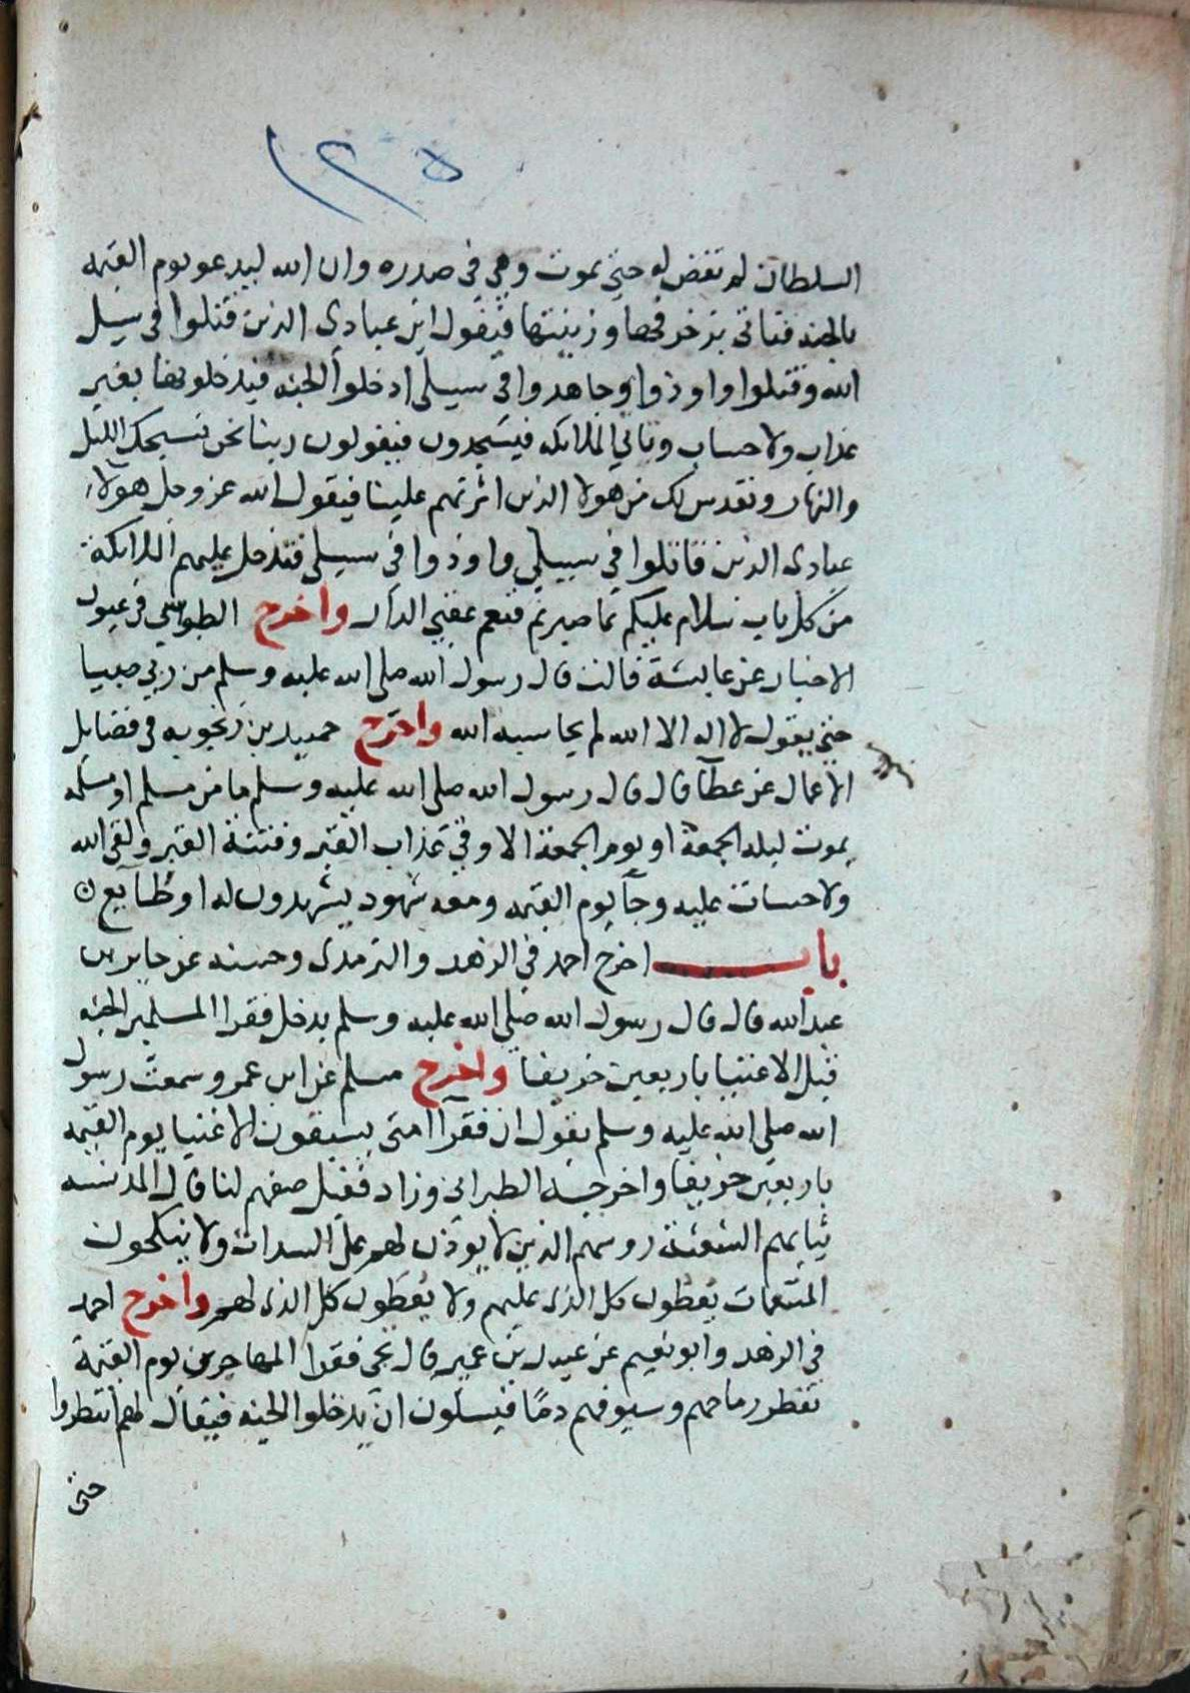 ١٢٥
السلطان لم تقض له حتى يموت وهي في صدره وان الله ليدعو يوم القيمه
بالجنه فتاتى بزخرفها وزينتها فيقول اين عبادى الذين قتلوا في سبيل
الله وقتلوا واوذوا وجاهدوا في سبيلي ادخلوا الجنه فيدخلونها بغير
عذاب ولا حساب وتاتي الملايكه فيسجدون فيقولون ربنا نحن نسبحك الليل
والنهار ونقدس لك من هولا الذين اثرتهم علينا فيقول الله عز وجل هولاء
عبادى الذين قاتلوا في سبيلي واوذوا في سبيلى فتدخل عليهم الملايكة
من كل باب سلام عليكم بما صبرتم فنعم عقبى الدار واخرج الطوسي في عيون
الاخبار عن عايشة قالت قال رسول الله صلى الله عليه وسلم من ربى صبيا
حتى يقول لا اله الا الله لم يحاسبه الله واخرج حميد بن زنجويه في فضايل
الاعمال عن عطآ قال قال رسول الله صلى الله عليه وسلم ما من مسلم او مسلمه
يموت ليله الجمعة او يوم الجمعة الا وقي عذاب القبر وفتنة القبر ولقى الله
ولا حساب عليه وجآ يوم القيمه ومعه شهود يشهدون له او طابع
باب اخرج احمد في الزهد والترمذى وحسنه عن جابر بن
عبد الله قال قال رسول الله صلى الله عليه وسلم يدخل فقرا المسلمين الجنه
قبل الاغنيا باربعين خريفا واخرج مسلم عن ابن عمرو سمعت رسول
الله صلى الله عليه وسلم يقول ان فقرآ امتى يسبقون الاغنيا يوم القيمه
باربعين خريفا واخرجه الطبراني وزاد فقيل صفهم لنا قال الدنسه
ثيابهم الشعثة روسهم الذين لا يوذن لهم على السدات ولا ينكحون
المتنعمات يعطون كل الذى عليهم ولا يعطون كل الذى لهم واخرج احمد
في الزهد وابو نعيم عن عبيد بن عمير قال يجى فقرا المهاجرين يوم القيمة
تقطر رماحهم وسيوفهم دمًا فيسلون ان يدخلوا الجنه فيقال لهم انتظروا
حتى